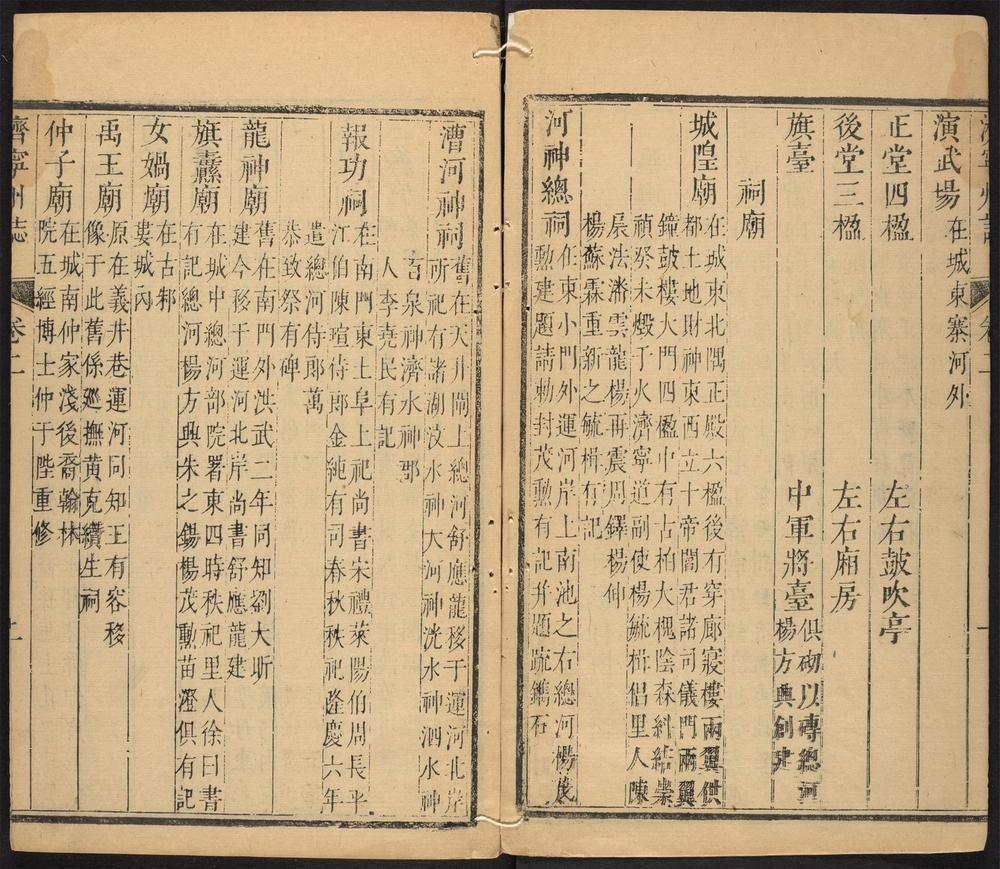 演武場在城東寨河外
正堂四楹 左右鼓吹亭
後堂三楹 左右廂房
旗臺 中軍將臺俱砌以磚總河
楊方興創建
祠廟
城隍廟在城東北隅正殿六楹後有穿廊寢樓兩翼供
都土地財神東西立十帝閻君諸司儀門兩翼
鐘鼓樓大門四楹中有古柏大槐陰森紏結崇
禎癸未燬于火濟寧道副使楊毓楫侶里人陳
辰法潘雲龍楊再震周鐸楊仲
楊蘇霖重新之毓楫有記
河神總祠在東小門外運河岸上南池之右總河楊茂
勳建題請勅封茂勳有記并題䟽鐫石
漕河神祠舊在天井閘上總河舒應龍移于運河北岸
所祀有諸湖汶水神大河神洸水神泗水神
百泉神濟水神郡
人李堯民有記
報功祠在南門東土阜上祀尚書宋禮萊陽伯周長平
江伯陳瑄侍郎金純有司春秋秩祀隆慶六年
遣總河侍郎萬
恭致祭有碑
龍神廟舊在南門外洪武二年同知劉大昕
建今移于運河北岸尚書舒應龍建
旗纛廟在城中總河部院署東四時秩祀里人徐曰書
有記總河楊方興朱之錫楊茂勳苗澄俱有記
女媧廟在古邾
婁城內
禹王廟原在義井巷運河同知王有容移
像于此舊係廵撫黃克纘生祠
仲子廟在城南仲家淺後裔翰林
院五經博士仲于陛重修
濟寧州志 卷二